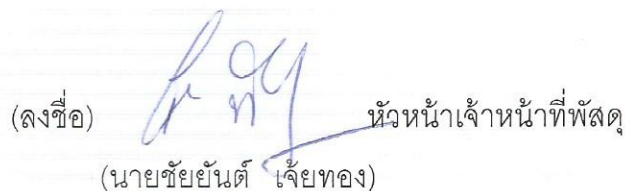 (ลงชื่อ) หัวหน้าเจ้าหน้าที่พัสดุ
(นายชัยยันต์ เจ้ยทอง)